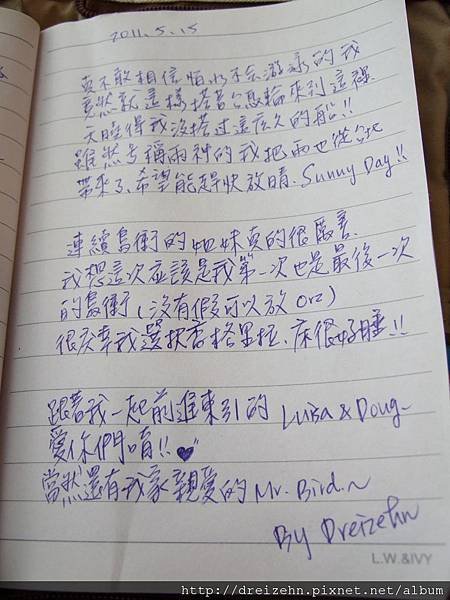 2011.5.15
真不敢相信怕水不会游泳的我
竟然就這樣搭著台馬輪來到這裡
天曉得我沒搭过這広久的船!!
雖然号稱雨神的我把雨也從台北
帶來了、希望能趕快放晴. Sunny Day!!
連續島衝的姐妹真的很厲害
我想這次应該是我第一次也是最後一次
的島衝(沒有假可以放 orz)
很庆幸我選扶香格里拉、床很好睡!!
跟着我一起前進東引的 Luisa & Doug~
愛你們唷!!♥
當然還有我家親愛的 Mr. Bird.~
By Dreizehn
L.W.&IVY
http://dreizehn.pixnet.net/album